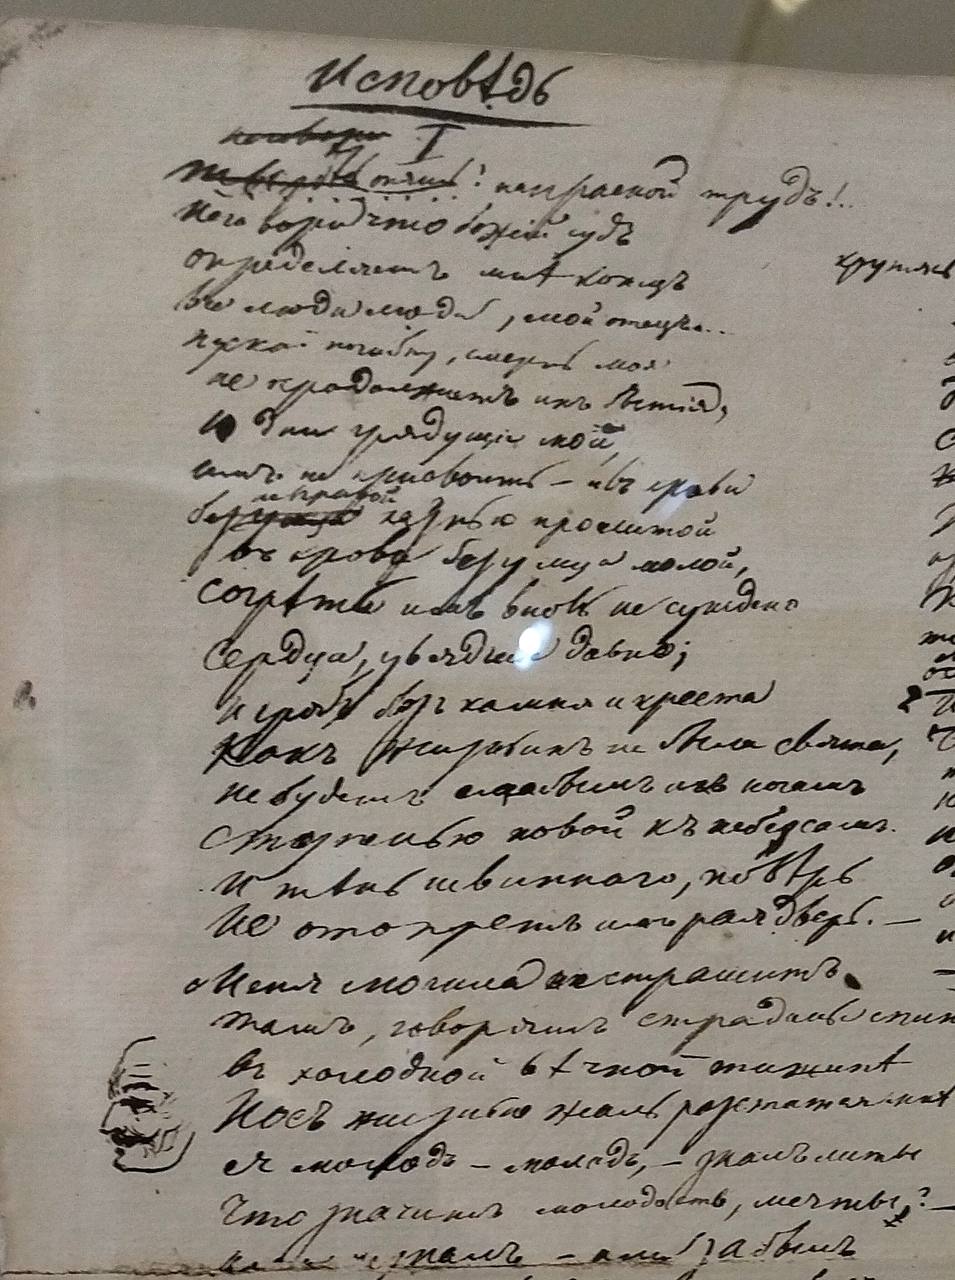 Исповѣдь
I
твердь опять! напрасной трудъ!..
Не говори что божій судъ
опредѣляетъ мнѣ конецъ
все люди люди, мой отецъ...
пускай погибну, смерть моя
не продолжитъ ихъ бытія,
и дни грядущіе мои
имъ не присвоить – и въ крови
неправой казнью пролитой
въ крови безумца молодой,
согрѣть имъ вновь не суждено
Сердца, увядшія давно;
и гробъ безъ камня и креста
Какъ жизнь ихъ ни была свята,
не будетъ слабымъ ихъ ногамъ
Ступенью новой къ небесамъ.
И тѣнь невиннаго, повѣрь
Не отопретъ имъ рая дверь. –
Меня могила не страшитъ.
тамъ, говорятъ страданье спитъ
въ холодной вѣчной тишинѣ
Но съ жизнью жаль разстаться мнѣ
я молодъ – молодъ, – зналъ ли ты
Что значитъ молодость, мечты,? –
или не зналъ – или забылъ